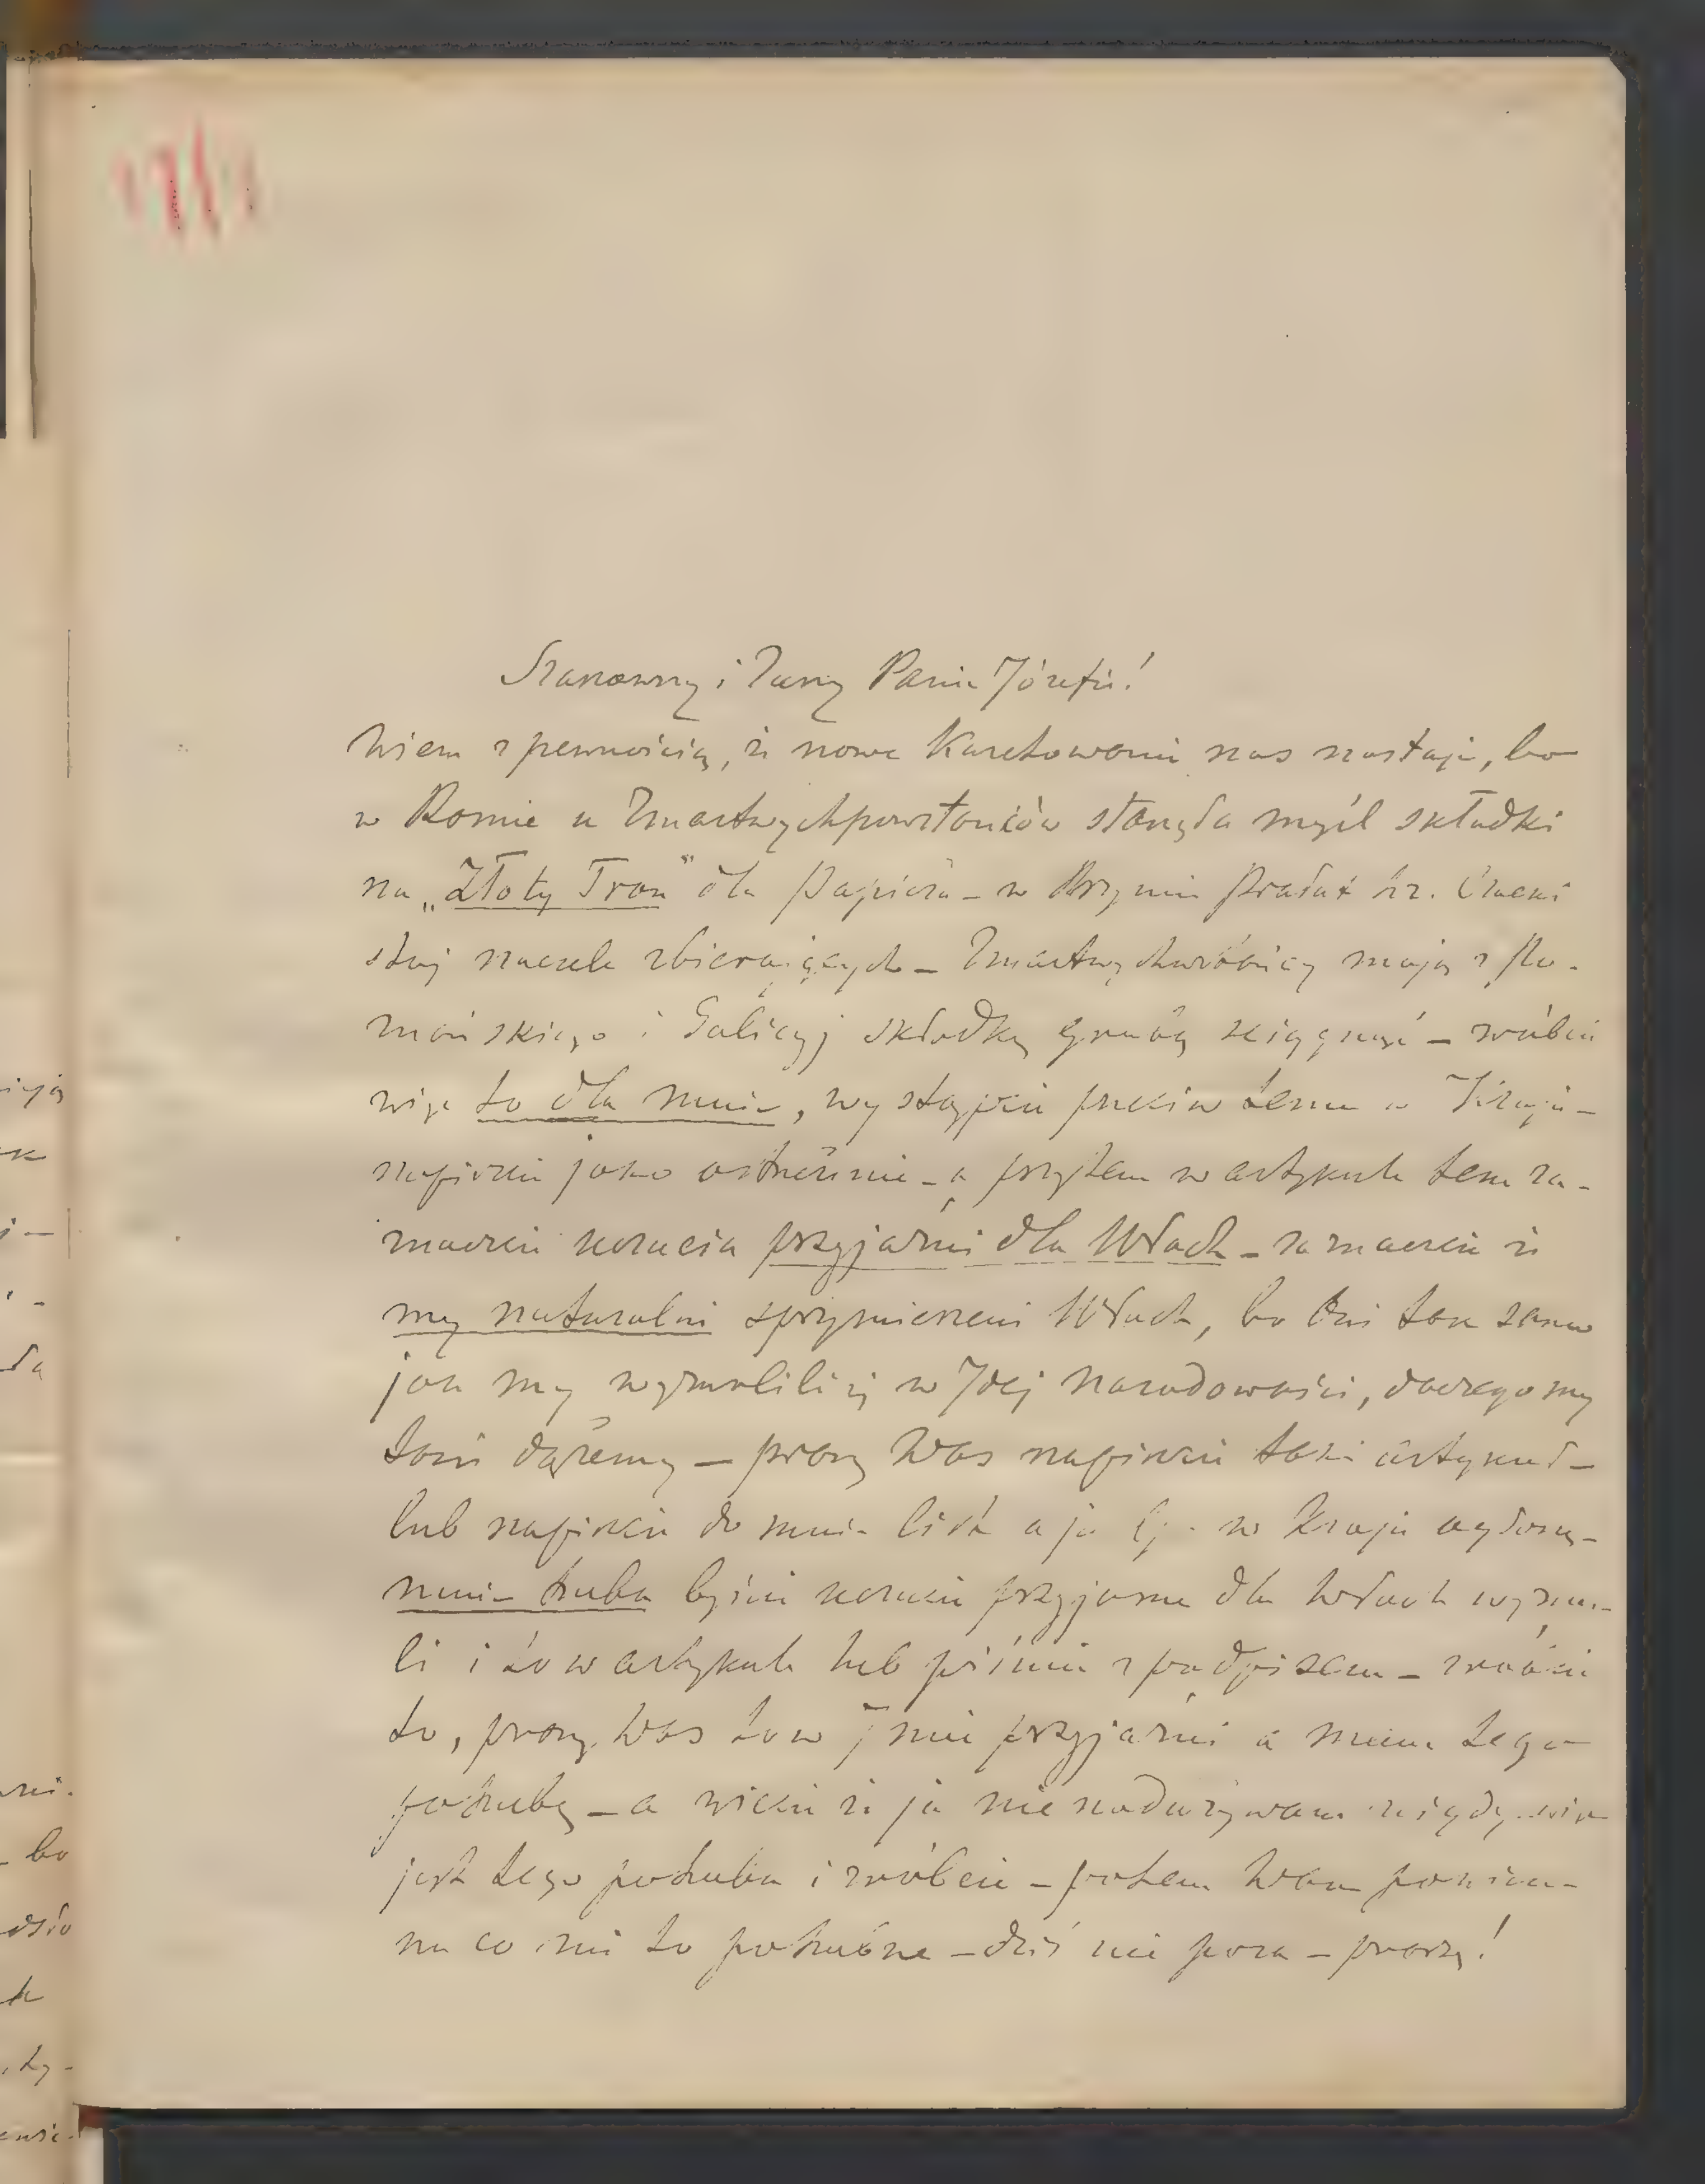 Szanowny i Zacny Panie Józefie!
Wiem z pewnością, że nowe nas nastaje, bo
w Romie u Zmartwychpowstańców stanęła myśl składki
na „Złoty Tron" dla Papieża – w Rzymie Prałat hr. Czacki
stoi na czele zbierających – Zmartwychwstańcy mają z Po-
znańskiego i Galicyj składkę grubą ściągnąć – zróbcie
więc to dla mnie, wystąpcie przeciw temu w Kraju –
napiszcie jako ostrzeżenie – a przytem w artykule tem za-
znaczcie uczucia przyjaźni dla Włoch – zaznaczcie że
my naturalni sprzymierzeni Włoch, bo oni tak samo
jak my wyrośli w Idej Narodowości, do czego my
toż dążemy – proszę Was napiszcie taki artykuł –
lub napiszcie do mnie list a ja w Kraju
mnie trzeba byście uczucie przyjazne dla Włoch wyrazi-
li i to w artykule lub piśmie z podpisem – zróbcie
to, proszę Was to w Imie przyjaźni a mam tego
potrzebę – a wiecie że ja nie nadużywam nigdy, więc
jest tego potrzeba i zróbcie – potem Wam powiem
na co mi to potrzebne – dziś nie pora – proszę!